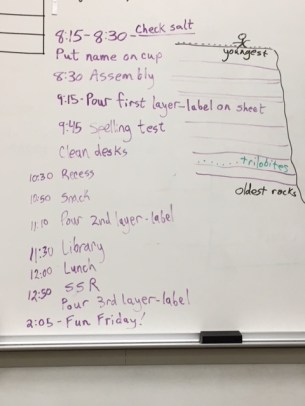 8:15-8:30 - Check salt
Put name on cup
8:30 Assembly
9:15 - Pour first layer-label on sheet
9:45 Spelling test
Clean desks
10:30 Recess
10:50 Snack
11:10 Pour 2nd layer-label
11:30 Library
12:00 Lunch
12:50 SSR
Pour 3rd layer-label
2:05 - Fun Friday!
youngest
trilobites
oldest rocks